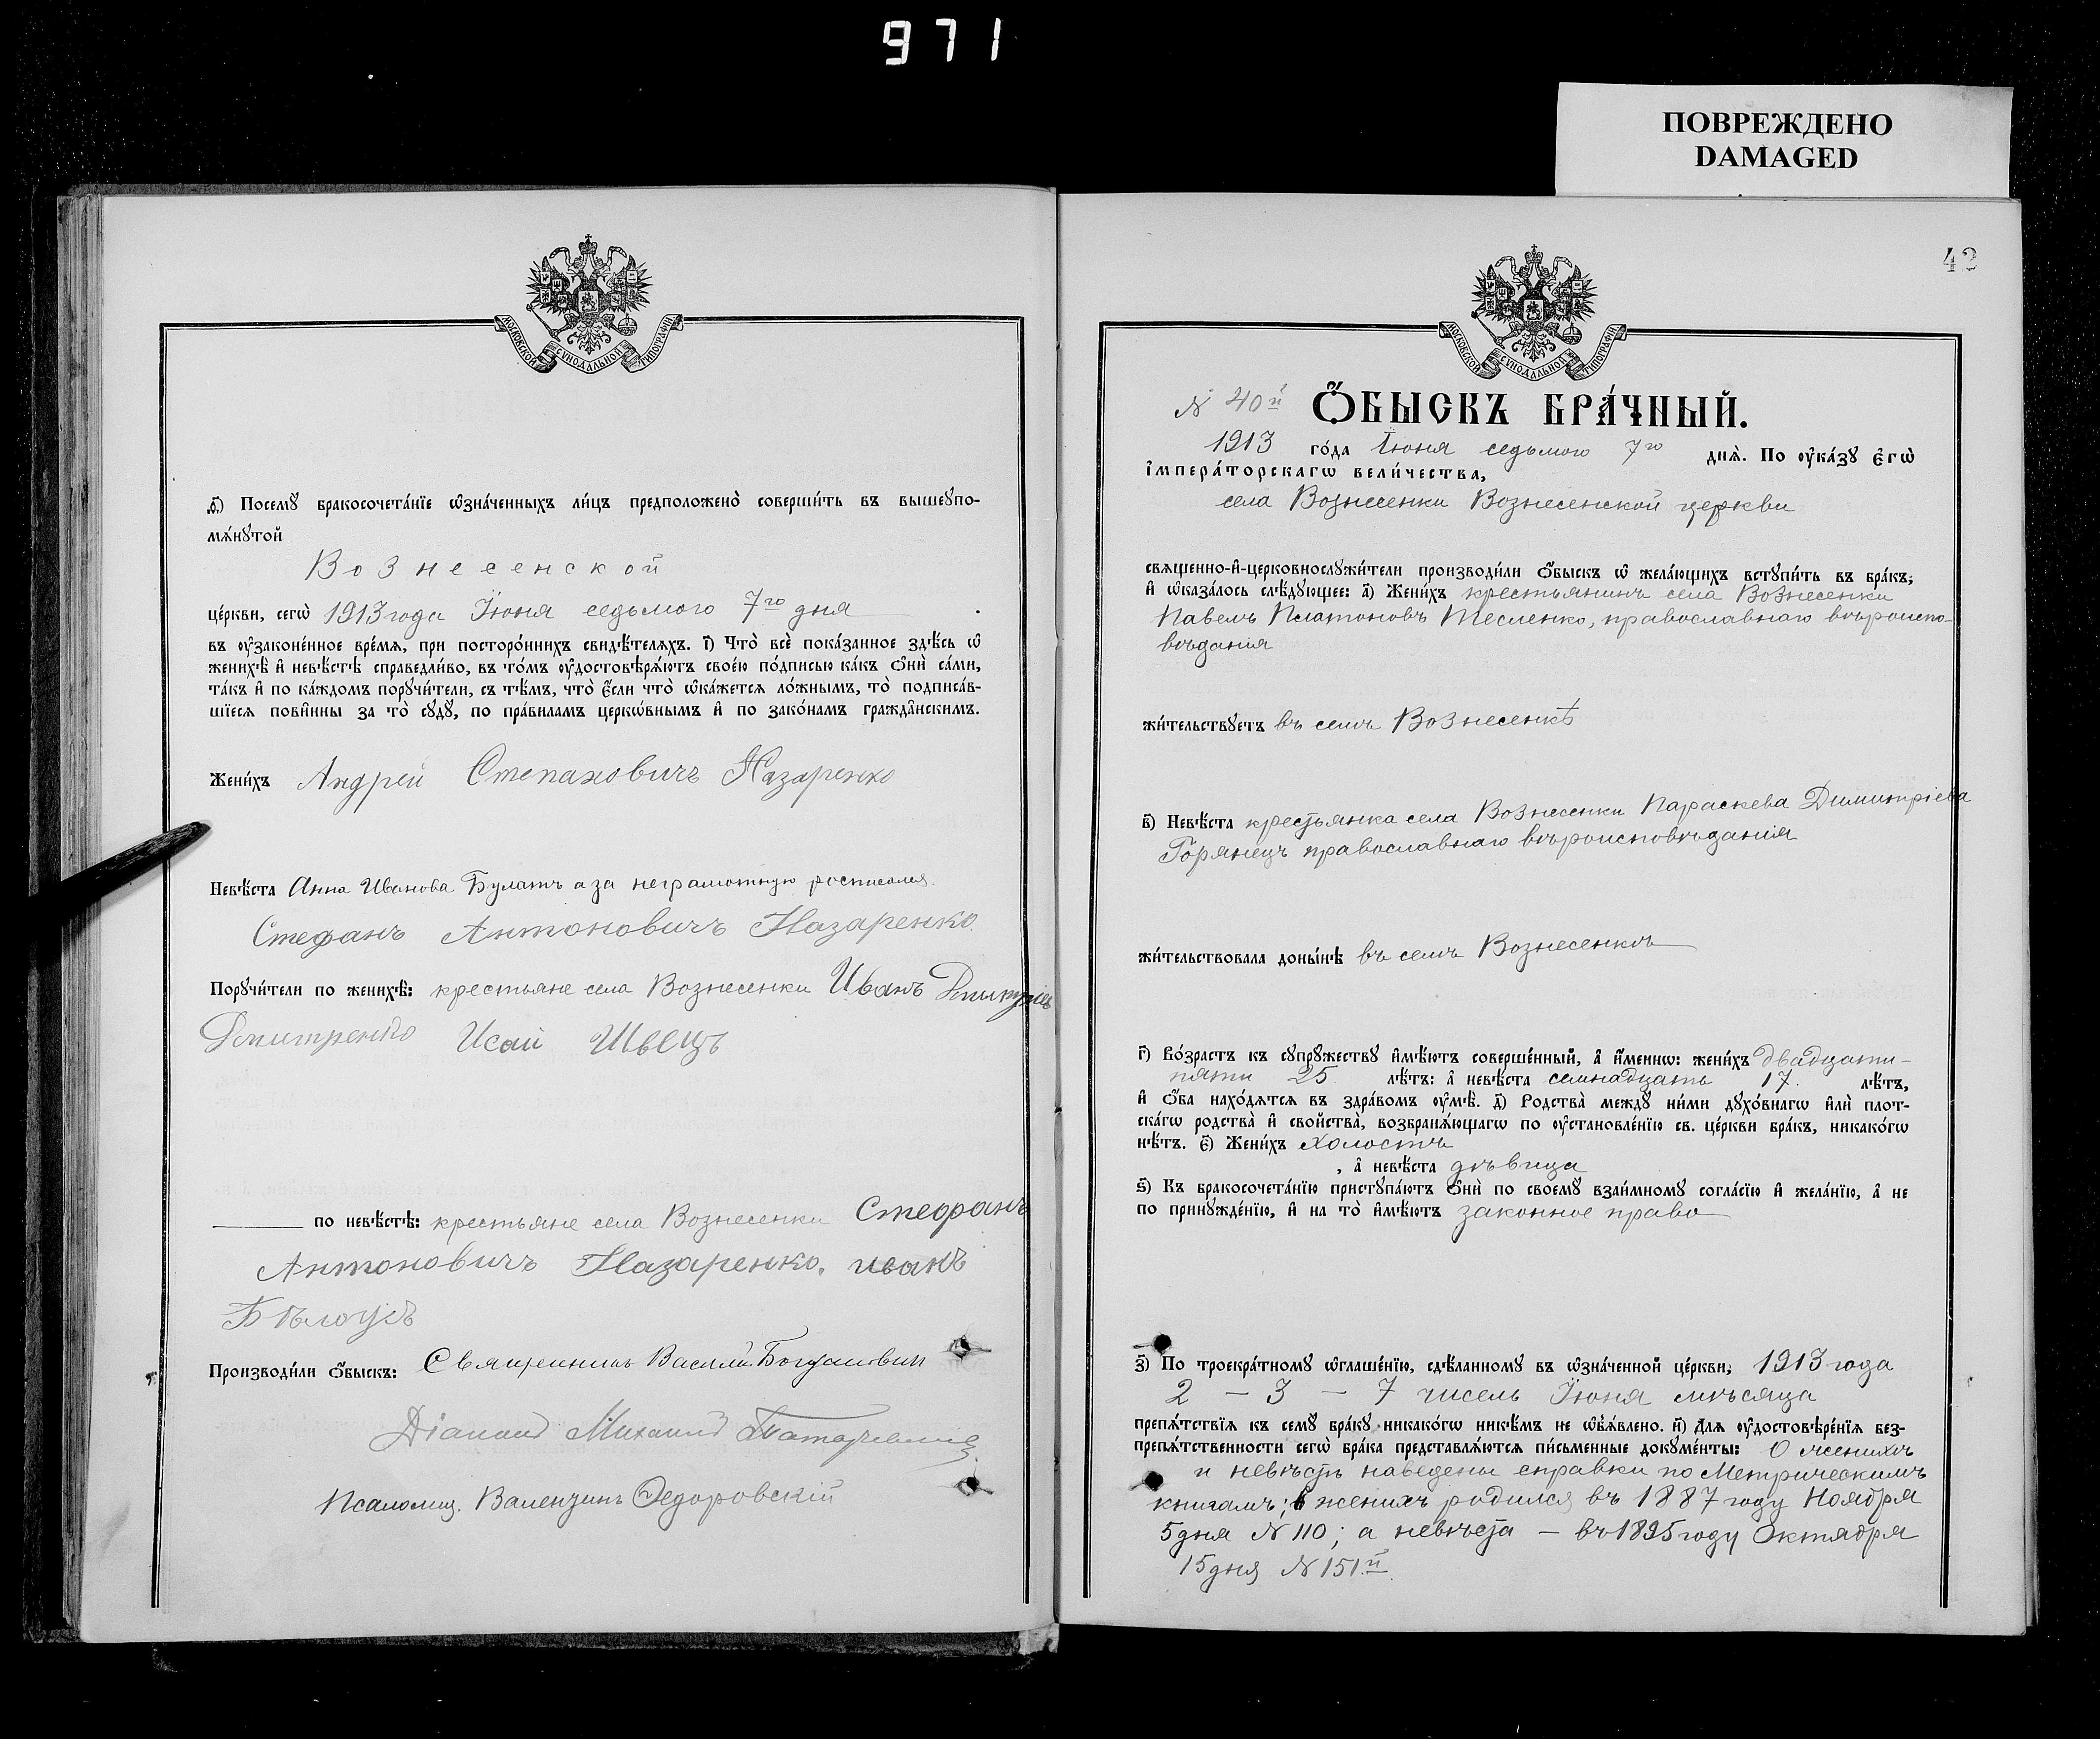 971
ПОВРЕЖДЕНО
DAMAGED
МОСКОВСКОЙ СѴНОДАЛЬНОЙ ТИПОГРАФІИ
д҃і) Посемꙋ бракосочета́нїе ѡ҆зна́ченныхъ ли́цъ предположено̀ соверши́ть въ вышеꙋпо-
мѧ́нꙋтой
Вознесенской
це́ркви, сегѡ̀ 1913 года Іюня седьмого 7го дня
въ оу҆зако́ненное вре́мѧ, при посторо́ннихъ свидѣ́телѧхъ. і҃) Что̀ всѐ пока́занное здѣ́сь ѡ҆
женихѣ̀ и҆ невѣ́стѣ справедли́во, въ то́мъ оу҆достовѣрѧ́ютъ свое́ю по́дписью ка́къ ѻ҆нѝ са́ми,
та́къ и҆ по ка́ждомъ порꙋчи́тели, съ тѣ́мъ, что̀ є҆́сли что̀ ѡ҆ка́жетсѧ ло́жнымъ, то̀ подписа́в-
шїесѧ пови́нны за то̀ сꙋдꙋ̀, по пра́виламъ церко́внымъ и҆ по зако́намъ гражда́нскимъ.
Жени́хъ Андрей Степановичъ Назаренко
Невѣ́ста Анна Иванова Булатъ а за неграмотную росписался
Стефанъ Антоновичъ Назаренко.
Порꙋчи́тели по женихѣ̀: крестьяне села Вознесенки Иванъ
Дмитренко Исай Швецъ
по невѣ́стѣ: крестьяне села Вознесенки Стефанъ
Антоновичъ Назаренко. иванъ
Бѣлоусъ
Производи́ли ѻ҆́быскъ: Священникъ Василій Богданович
Діаконъ Михаилъ
Псаломщ. Валентинъ Федоровскій
42
МОСКОВСКОЙ СѴНОДАЛЬНОЙ ТИПОГРАФІИ
N 40й Ѻ҆́БЫСКЪ БРА́ЧНЫЙ.
1913 го́да Іюня седьмого 7го днѧ̀. По оу҆ка́зꙋ є҆гѡ̀
і҆мпера́торскагѡ вели́чества,
села Вознесенки Вознесенской церкви
свѧщенно-и҆-церковнослꙋжи́тели производи́ли ѻ҆́быскъ ѡ҆ жела́ющихъ встꙋпи́ть въ бра́къ;
и҆ ѡ҆каза́лось слѣ́дꙋющее: а҃) Жени́хъ крестьянинъ села Вознесенки
Павелъ Платоновъ Тесленко, православнаго вѣроиспо-
вѣданія
жи́тельствꙋетъ въ селѣ Вознесенкѣ
в҃) Невѣ́ста крестьянка села Вознесенки Параскева Димитріева
Горянецъ православнаго вѣроисповѣданія
жи́тельствовала доны́нѣ въ селѣ Вознесенкѣ
г҃) Во́зрастъ къ сꙋпрꙋ́жествꙋ и҆мѣ́ютъ соверше́нный, а҆ и҆́меннѡ: жени́хъ двадцати-
пяти 25 лѣ́тъ: а҆ невѣ́ста семнадцать 17. лѣ́тъ,
и҆ ѻ҆́ба нахо́дѧтсѧ въ здра́вомъ оу҆мѣ̀. д҃) Родства̀ междꙋ ни́ми дꙋхо́внагѡ и҆лѝ плот-
ска́гѡ родства̀ и҆ свойства̀, возбранѧ́ющагѡ по оу҆становле́нїю св. це́ркви бра́къ, никако́гѡ
нѣ́тъ. є҃) Жени́хъ холостъ
, а҆ невѣ́ста дѣвица
ѕ҃) Къ бракосочета́нїю пристꙋпа́ютъ ѻ҆нѝ по своемꙋ̀ взаи́мномꙋ согла́сїю и҆ жела́нїю, а҆ не
по принꙋжде́нїю, и҆ на то̀ и҆мѣ́ютъ законное право
з҃) По троекра́тномꙋ ѡ҆глаше́нїю, сдѣ́ланномꙋ въ ѡ҆зна́ченной це́ркви, 1913 года
2 – 3 – 7 чиселъ Іюня мѣсяца
препѧ́тствїѧ къ семꙋ̀ бра́кꙋ никако́гѡ никѣ́мъ не ѡ҆б̾ѧ́влено. и҃) Длѧ оу҆достовѣре́нїѧ без-
препѧ́тственности сегѡ̀ бра́ка представлѧ́ютсѧ пи́сьменные докꙋме́нты: О женихѣ
и невѣстѣ наведены справки по Метрическимъ
книгамъ; женихъ родился въ 1887 году Ноября
5 дня N 110; а невѣста – въ 1895 году Октября
15 дня N 151.й